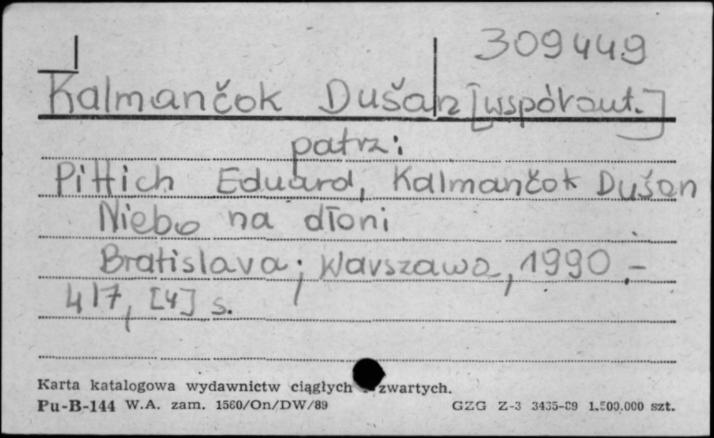 309449
Kalmančok Dušan [współaut.]
patrz:
Pittich Eduard, Kalmančok Dušan
Niebo na dłoni
Bratislava; Warszawa, 1990.-
417, [4] s.
Karta katalogowa wydawnictw ciągłych zwartych.
Pu-B-144 W.A. zam. 1560/On/DW/89 GZG Z-3 3435-89 1.500.000 szt.